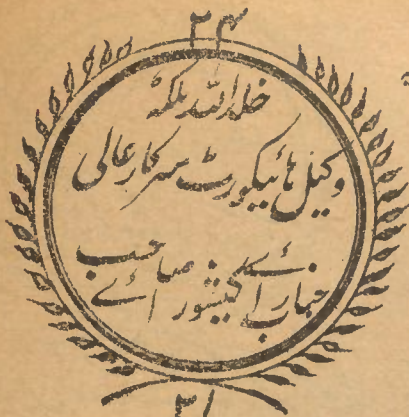 ۲۴
خلد اللہ ملکہ
وکیل ہائیکورٹ سرکار عالی
جناب رائے کیشور رائے صاحب
۳۱